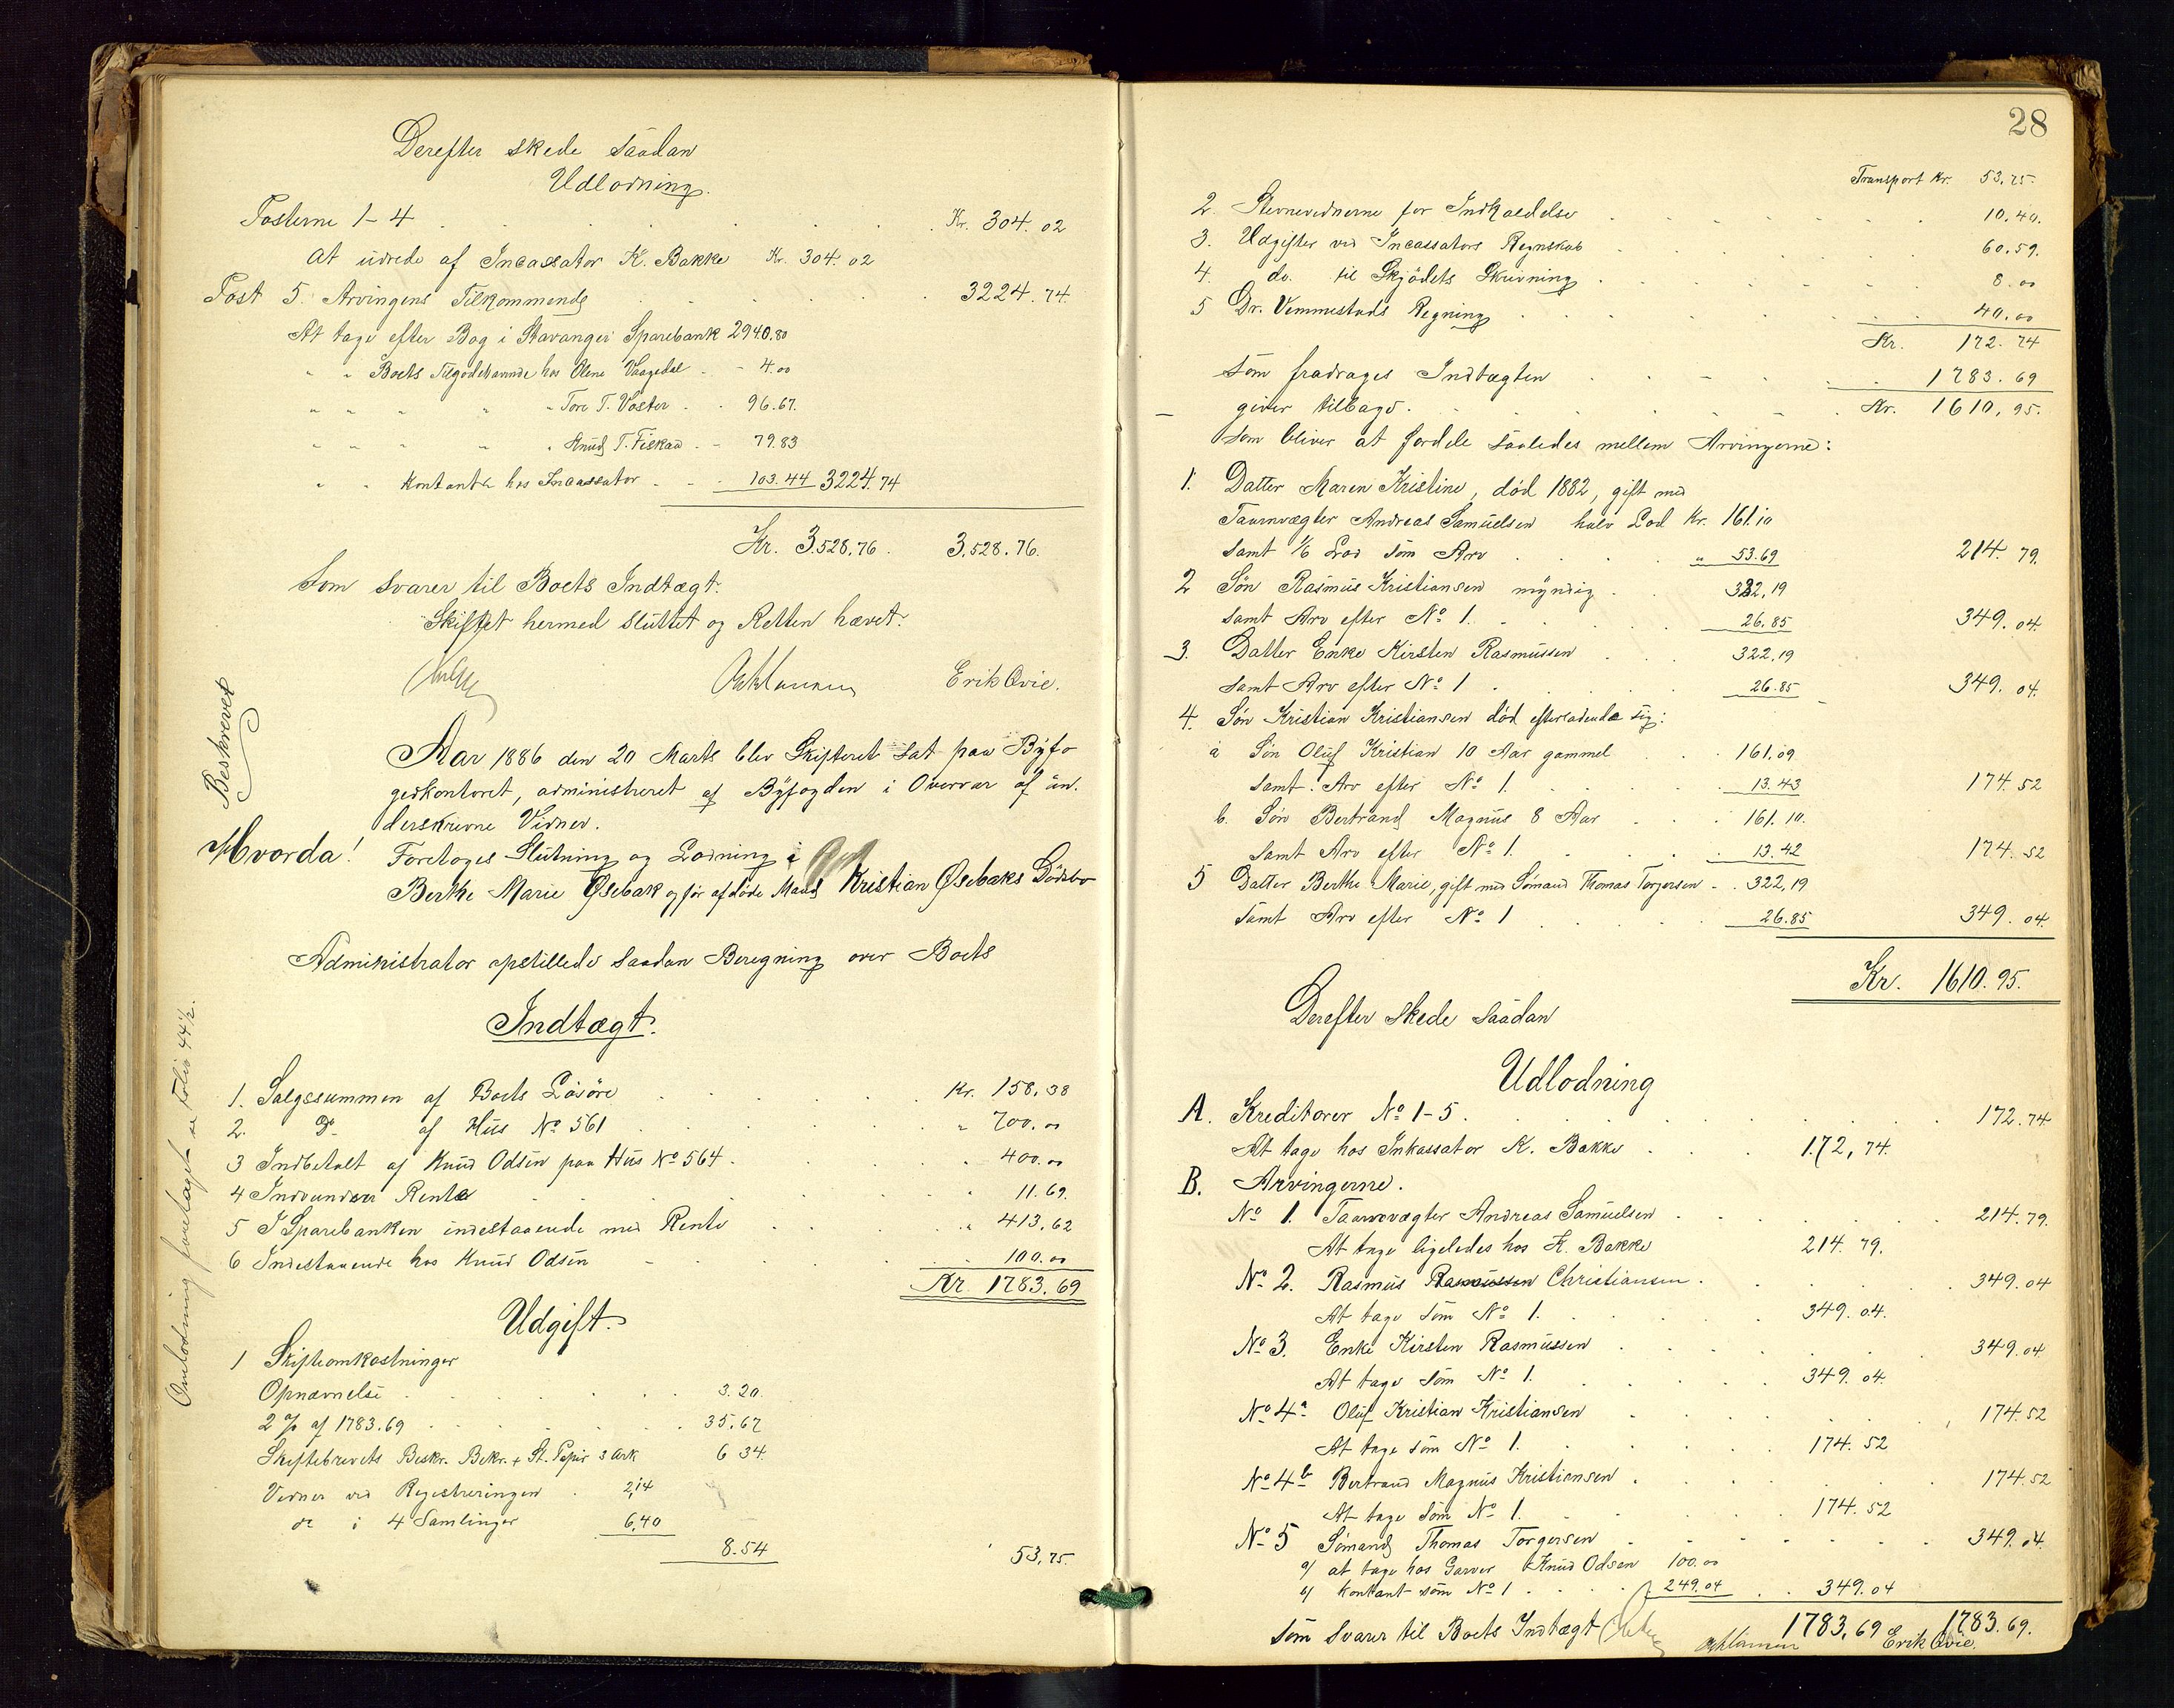 Derefter skede saadan
Udlodning.
Posterne 1-4 . . . . . . Kr. 304.02
At udrede af Incassator K. Bakke Kr. 304.02
Post 5. Arvingens Tilkommende . . . . 3224.74.
At tage efter Bog i Stavanger Sparebank 2940.80
" " Boets Tilgodehavende hos Olene Vaagedal - - 4.00
" " " " " Tore T. Voster . . 96.67.
" " " " " Knud T. Fiskaa . - 79.83
" " Kontante hos Incassator - - . 103.44 3224.74
Kr. 3.528.76. 3.528.76.
Som svarer til Boets Indtægt.
Skiftet hermed sluttet og Retten hævet.
Erik Qvie.
Beskrevet
Aar 1886 den 20 Marts blev Skifteret sat paa Byfo
gedkontoret, administreret af Byfogden i Overvær af un-
derskrevne Vidner.
Hvorda!
Foretoges Slutning og Lodning i
Berthe Marie Øsebak og før afdøde Mand Kristian Øsebaks Dødsbo
Administrator opstillede saadan Beregning over Boets
Indtægt.
1. Salgssummen af Boets Løsøre . . . . . Kr. 158,38
2. Do af Hus No 561 . . . . " 700.00
3 Indbetalt af Knud Odsen paa Hus No 564 . . . . 400.00
4 Indvunden Rente . . . . . . 11.69.
5 I Sparebanken indestaaende med Rente . . . . 413,62
6 Indestaaende hos Knud Odsen - - . . . 100.00
Kr. 1783.69
Omlodning foretaget se Folio 44 1/2.
Udgift.
1 Skifteomkostninger
Opnævnelse . . . . . . . 3.20.
2 % af 1783.69 . . . . . . 35.67
Skiftebrevets Beskr. Bekr. + St. Papir 3 Ark 6 34.
Vidner ved Registreringen . 2,14
do i 4 Samlinger 6,40
8.54 53,75.
28
Transport Kr. 53,75.
2. Stevnevidnerne for Indkaldelse . . . . . . 10.40.
3. Udgifter ved Incassators Regnskab . . . . . 60.59.
4. do. til Skjødets Skrivning . . . . . 8.00
5 Dr. Vemmestads Regning . . . . . 40.00
Kr. 172.74
Som fradrages Indtægten . . - . . 1783.69
giver tilbage. . . . . . Kr. 1610,95.
som bliver at fordele saaledes mellem Arvingerne:
1. Datter Maren Kristine, død 1882, gift med
Taarnvægter Andreas Samuelsen halv Lod Kr. 161.10
samt 1/6 Lod som Arv . . . . " 53.69 214.79.
2 Søn Rasmus Kristiansen myndig . . 322,19
samt Arv efter No 1. . . . . 26.85 349.04.
3. Datter Enke Kirsten Rasmussen . . . 322,19
samt Arv efter No 1 . . . . 26.85 349.04.
4. Søn Kristian Kristiansen død efterladende sig:
a Søn Oluf Kristian 10 Aar gammel . . . 161.09
samt Arv efter No 1. . . . 13.43 174.52
b. Søn Bertrand Magnus 8 Aar . . . 161.10.
samt Arv efter No 1. . . . 13.42 174.52
5 Datter Berthe Marie, gift med Sømand Thomas Torgersen - . 322,19
samt Arv efter No 1 . . . . 26.85 349.04
Kr. 1610.95.
Derefter skede saadan
Udlodning
A. Kreditorer No 1-5. . . . . . 172.74
At tage hos Inkassator K. Bakke . . . 172,74.
B. Arvingerne.
No 1. Taarnvægter Andreas Samuelsen . . . . . 214.79.
At tage ligeledes hos K. Bakke 214.79.
No 2. Rasmus Rasmussen Christiansen. . . . . 349.04
At tage som No 1. . . . . 349.04.
No 3. Enke Kirsten Rasmussen . . . . . 349.04
At tage som No 1. . . . . 349.04.
No 4a Oluf Kristian Kristiansen . . . . . 174.52
At tage som No 1. . . . . 174.52
No 4b Bertrand Magnus Kristiansen . . . . 174.52
At tage som No 1. . . . . 174.52
No 5 Sømand Thomas Torgersen . . . . . 349.04.
a) at tage hos Garver Knud Odsen 100.00
b) Kontant som No 1 . . . 249.04 . . 349.04
som svarer til Boets Indtægt 1783,69 1783.69.
Erik Qvie.